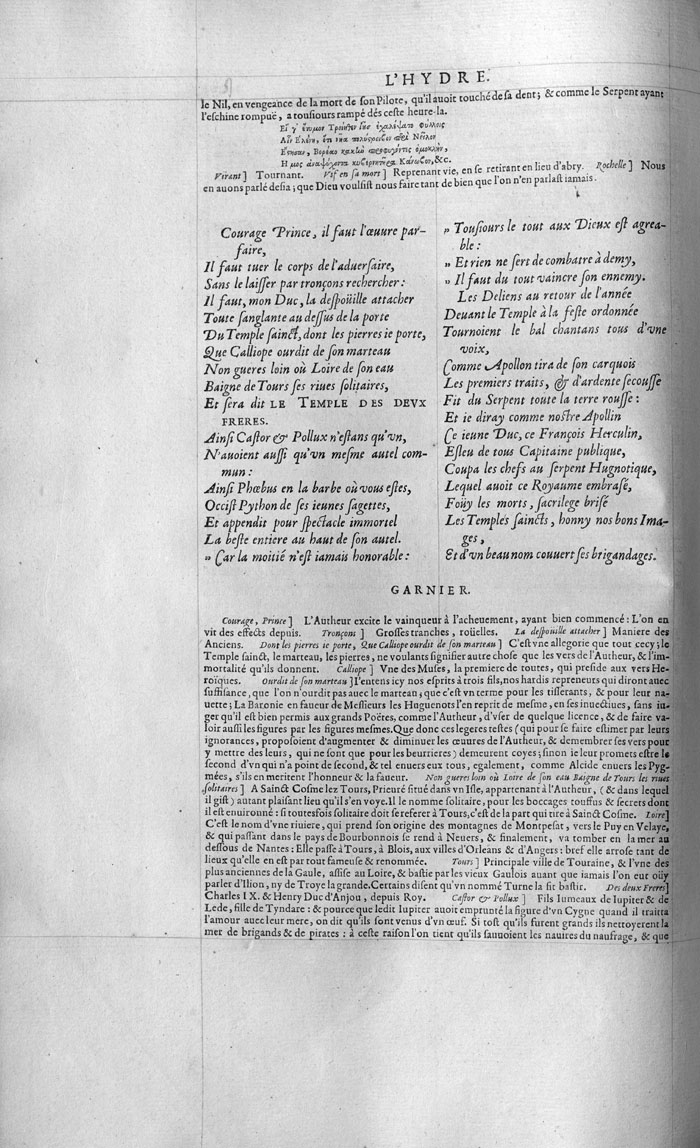 L'HYDRE.
le Nil, en vengeance de la mort de son Pilote, qu'il auoit touché de sa dent; & comme le Serpent ayant
l'eschine rompuë, a tousiours rampé dés ceste heure-la.
Virant] Tournant. Vif en sa mort] Reprenant vie, en se retirant en lieu d'abry. Rochelle] Nous
en auons parlé desia; que Dieu voulsist nous faire tant de bien que l'on n'en parlast iamais.
Courage Prince, il faut l'œuure par-
faire,
Il faut tuer le corps de l'aduersaire,
Sans le laisser par tronçons rechercher:
Il faut, mon Duc, la despoüille attacher
Toute sanglante au dessus de la porte
Du Temple sainct, dont les pierres ie porte,
Que Calliope ourdit de son marteau
Non gueres loin où Loire de son eau
Baigne de Tours ses riues solitaires,
Et sera dit LE TEMPLE DES DEVX
FRERES.
Ainsi Castor & Pollux n'estans qu'vn,
N'auoient aussi qu'vn mesme autel com-
mun:
Ainsi Phœbus en la barbe où vous estes,
Occist Python de ses ieunes sagettes,
Et appendit pour spectacle immortel
La beste entiere au haut de son autel.
» Car la moitié n'est iamais honorable:
» Tousiours le tout aux Dieux est agrea-
ble:
» Et rien ne sert de combatre à demy,
» Il faut du tout vaincre son ennemy.
Les Deliens au retour de l'année
Deuant le Temple à la feste ordonnée
Tournoient le bal chantans tous d'vne
voix,
Comme Apollon tira de son carquois
Les premiers traits, & d'ardente secousse
Fit du Serpent toute la terre rousse:
Et ie diray comme nostre Apollin
Ce ieune Duc, ce François Herculin,
Esleu de tous Capitaine publique,
Coupa les chefs au serpent Hugnotique,
Lequel auoit ce Royaume embrasé,
Foüy les morts, sacrilege brisé
Les Temples saincts, honny nos bons Ima-
ges,
Et d'vn beau nom couuert ses brigandages.
GARNIER.
Courage, Prince] L'Autheur excite le vainqueur à l'acheuement, ayant bien commencé: L'on en
vit des effects depuis. Tronçons] Grosses tranches, roüelles. La despouille attacher] Maniere des
Anciens. Dont les pierres ie porte, Que Calliope ourdit de son marteau] C'est vne allegorie que tout cecy; le
Temple sainct, le marteau, les pierres, ne voulants signifier autre chose que les vers de l'Autheur, & l'im-
mortalité qu'ils donnent. Calliope] Vne des Muses, la premiere de toutes, qui preside aux vers He-
roïques. Ourdit de son marteau] I'entens icy nos esprits à trois fils, nos hardis repreneurs qui diront auec
suffisance, que l'on n'ourdit pas auec le marteau; que c'est vn terme pour les tisserants, & pour leur na-
uette; La Baronie en faueur de Messieurs les Huguenots l'en reprit de mesme, en ses inuectiues, sans iu-
ger qu'il est bien permis aux grands Poëtes, comme l'Autheur, d'vser de quelque licence, & de faire va-
loir aussi les figures par les figures mesmes. Que donc ces legeres testes (qui pour se faire estimer par leurs
ignorances, proposoient d'augmenter & diminuer les œuures de l'Autheur, & demembrer ses vers pour
y mettre des leurs, qui ne sont que pour les beurrieres) demeurent coyes; sinon ie leur promets estre le
second d'vn qui n'a point de second, & tel enuers eux tous, egalement, comme Alcide enuers les Pyg-
mées, s'ils en meritent l'honneur & la faueur. Non gueres loin où Loire de son eau Baigne de Tours les riues
solitaires] A Sainct Cosme lez Tours, Prieuré situé dans vn Isle, appartenant à l'Autheur, (& dans lequel
il gist) autant plaisant lieu qu'il s'en voye. Il le nomme solitaire, pour les boccages touffus & secrets dont
il est enuironné: si toutesfois solitaire doit se referer à Tours, c'est de la part qui tire à Sainct Cosme. Loire]
C'est le nom d'vne riuiere, qui prend son origine des montagnes de Montpesat, vers le Puy en Velaye,
& qui passant dans le pays de Bourbonnois se rend à Neuers, & finalement, va tomber en la mer au
dessous de Nantes: Elle passe à Tours, à Blois, aux villes d'Orleans & d'Angers: bref elle arrose tant de
lieux qu'elle en est par tout fameuse & renommée. Tours] Principale ville de Touraine, & l'vne des
plus anciennes de la Gaule, assise au Loire, & bastie par les vieux Gaulois auant que iamais l'on eut oüy
parler d'Ilion, ny de Troye la grande. Certains disent qu'vn nommé Turne la fit bastir. Des deux Freres]
Charles IX. & Henry Duc d'Anjou, depuis Roy. Castor & Pollux] Fils Iumeaux de Iupiter & de
Lede, fille de Tyndare: & pource que ledit Iupiter auoit emprunté la figure d'vn Cygne quand il traitta
l'amour auec leur mere, on dit qu'ils sont venus d'vn œuf. Si tost qu'ils furent grands ils nettoyerent la
mer de brigands & de pirates: à ceste raison l'on tient qu'ils sauuoient les nauires du naufrage, & que